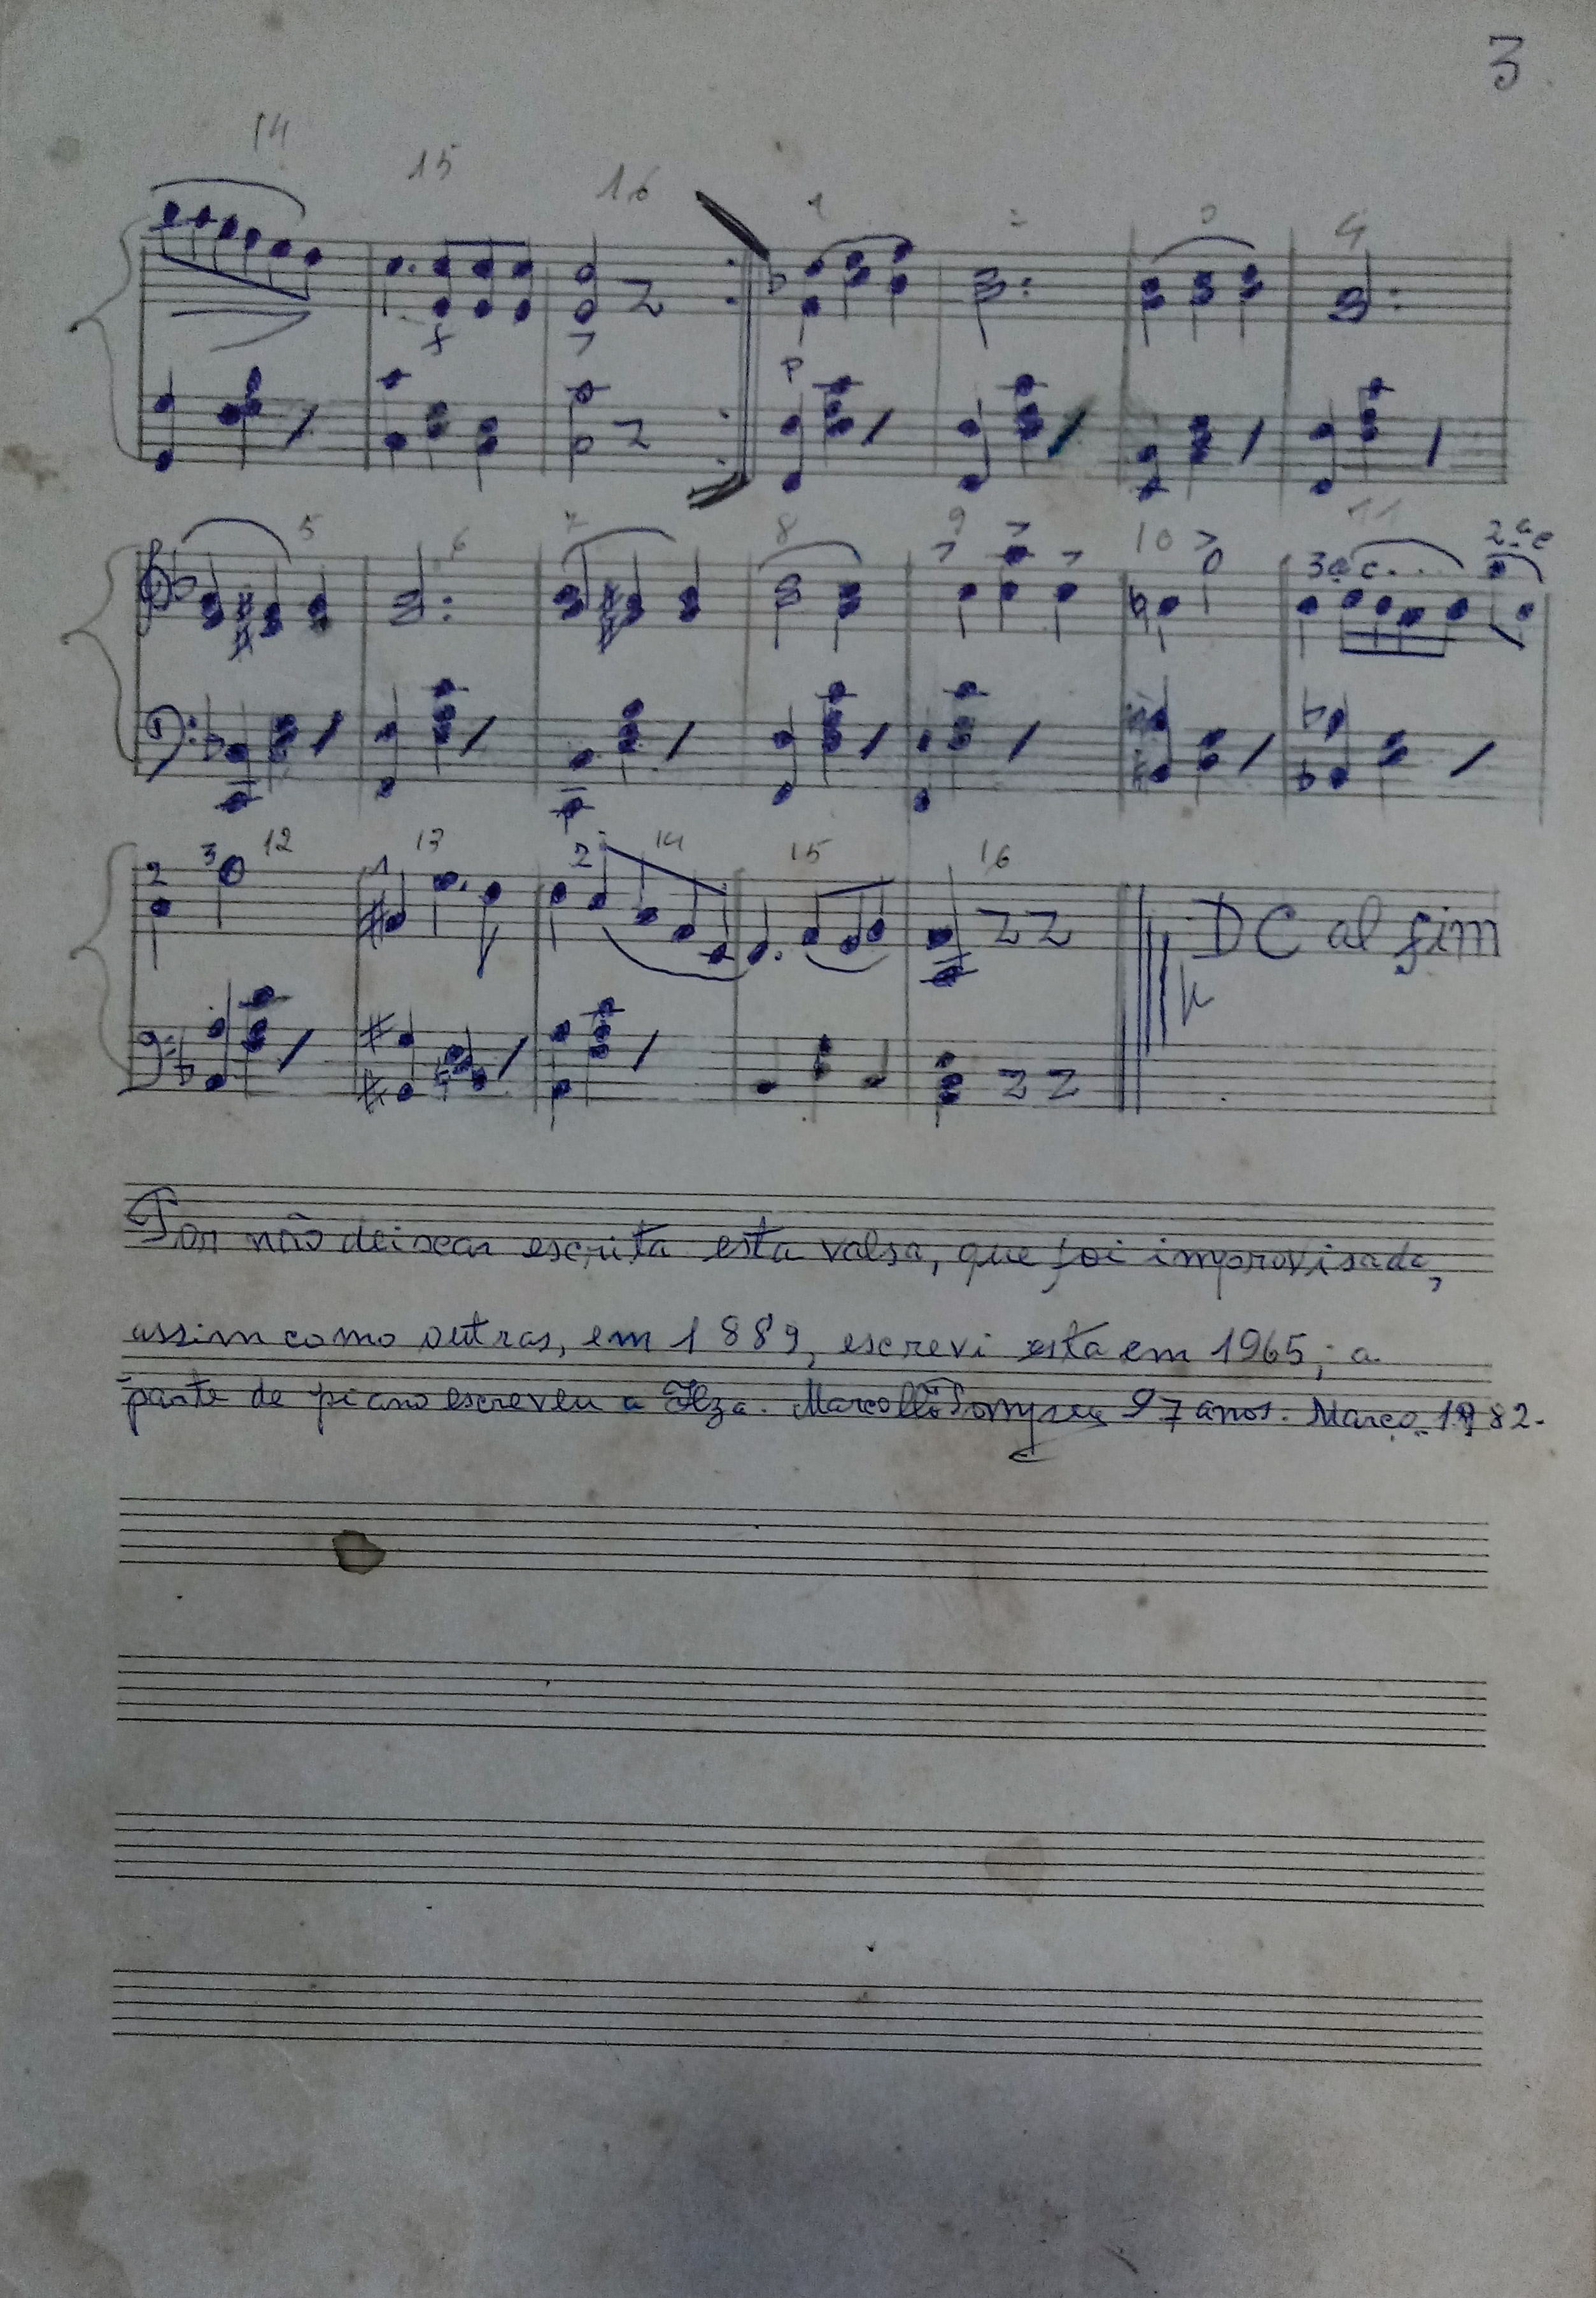 3
14 15 16 1 2 3 4
f
P
5 6 7 8 9 10 11
3a c. 2ª c
2 3 12 1 13 2 14 15 16
DC al fim
Por não deixar escrita esta valsa, que foi improvisada,
assim como outras, em 1889, escrevi esta em 1965; a
parte de piano escreveu a Ilza. 97 anos. Março 1982.